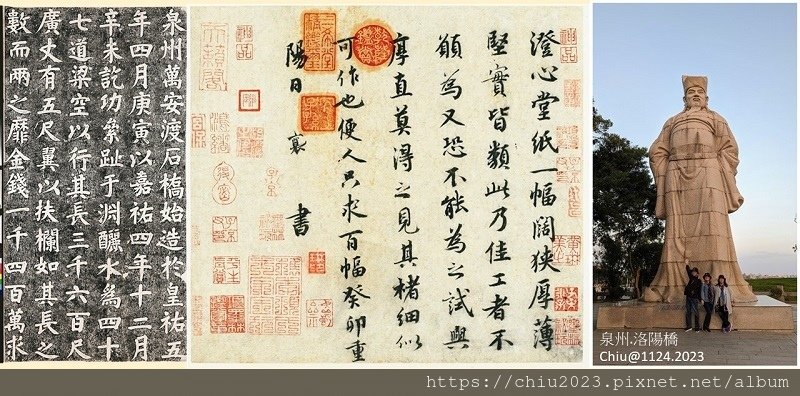 泉州萬安渡石橋始造於皇祐五
年四月庚寅以嘉祐四年十二月
辛未訖功絫趾于淵釃水為四十
七道梁空以行其長三千六百尺
廣丈有五尺翼以扶欄如其長之
數而兩之靡金錢一千四百萬求
澄心堂紙一幅闊狹厚薄
堅實皆類此乃佳工者不
願為又恐不能為之試與
厚直莫得之見其楮細似
可作也便人只求百幅癸卯重
陽日 襄 書
泉州.洛陽橋
Chiu@1124.2023
https://chiu2023.pixnet.net/album